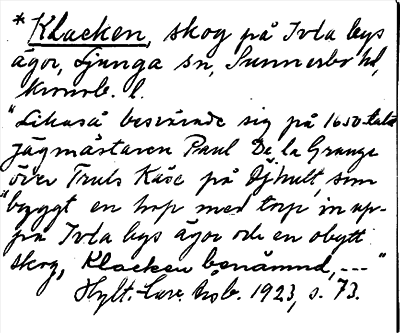 * Klacken, skog på Ivla bys
ägor, Ljunga sn, Sunnerbo hd,
Kronob. l.
"Likaså besvärade sig på 1650-talet
jägmästaren Paul De la Grange
över Truls Kåse på Öjhult, som
"byggt en hop med torp in up-
på Ivla bys ägor och en obytt
skog, Klacken benämnd, ---"
Hylt.-Cav. årsb. 1923, s. 73.